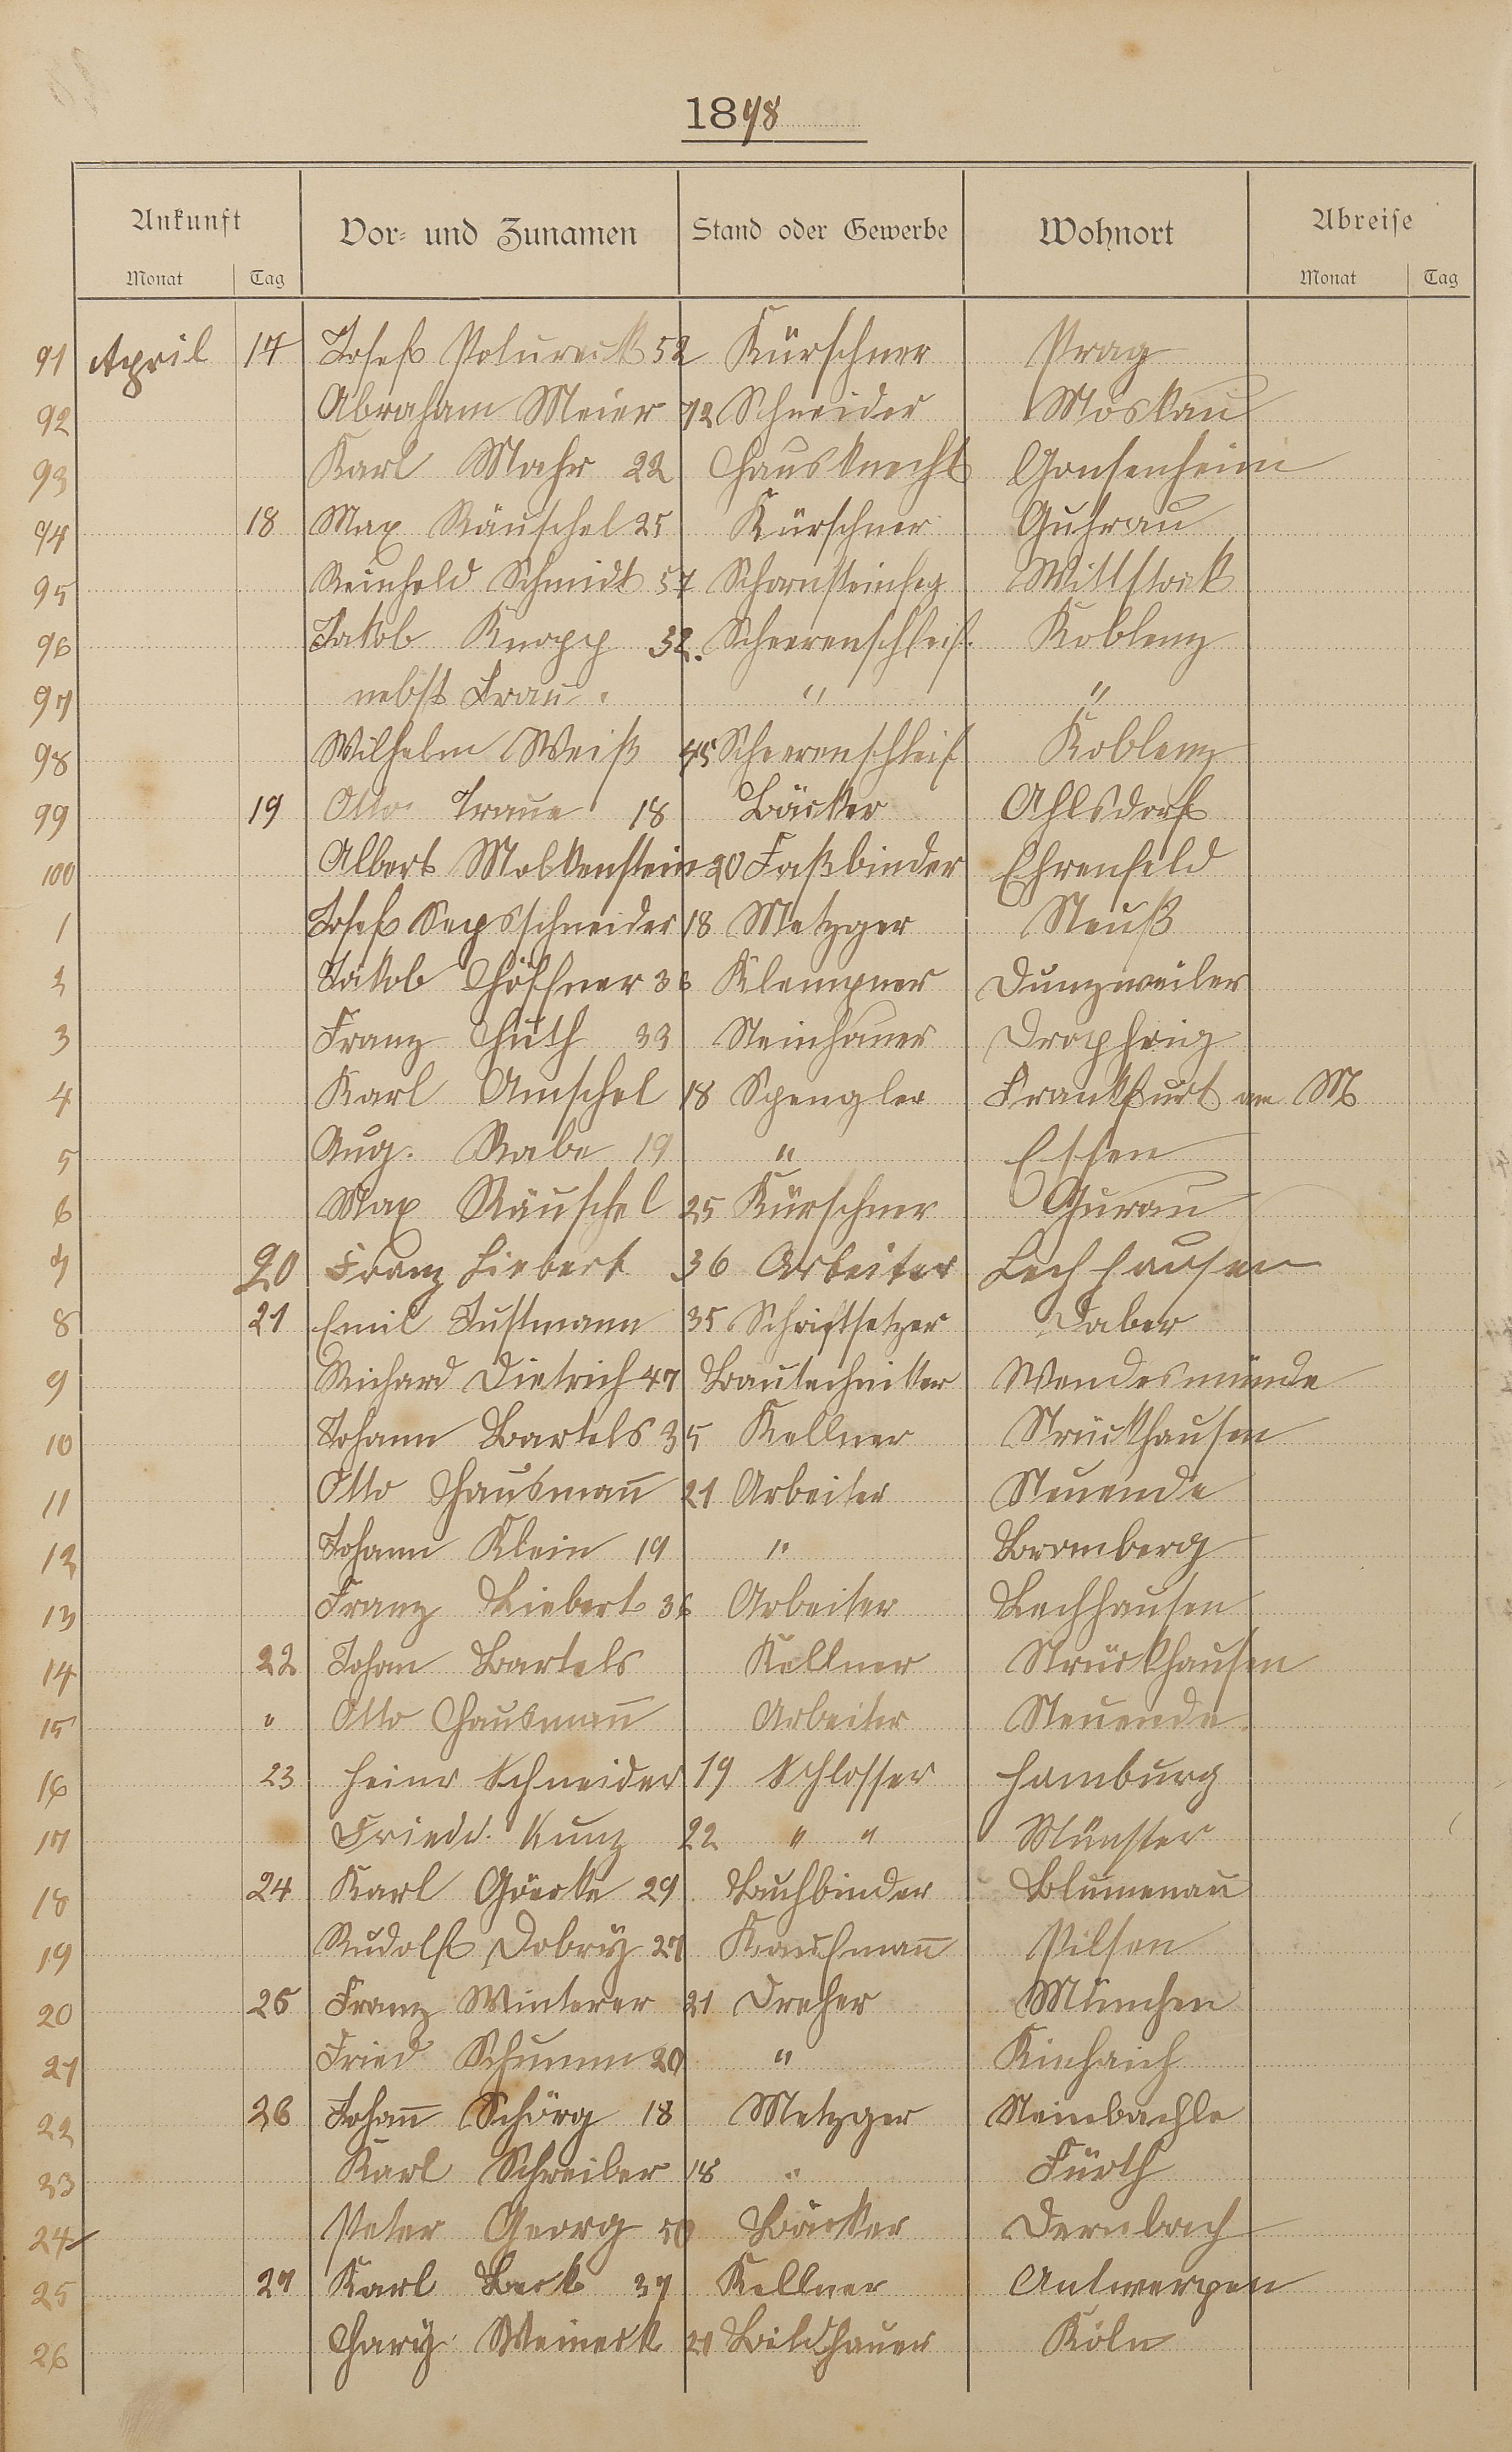 1898
Ankunft Vor- und Zunamen Stand oder Gewerbe Wohnort Abreise
Monat Tag Monat Tag
91 April 17 Josef 52 Kürschner Prag
92 Abraham Meier 72 Schneider Moskau
93 Karl Mahr 22 Hausknecht Gonsenheim
94 18 Max Räuschel 25 Kürschner Guhrau
95 Reinhold Schmidt 57 Schornsteinfeg Wittstock
96 Jakob Knopp 32. Scheerenschleif. Koblenz
97 nebst Frau " "
98 Wilhelm Weiß 45 Scheerenschleif Koblenz
99 19 Otto Traue 18 Bäcker Ahlsdorf
100 Albert Molkenstein 20 Faßbinder Ehrenfeld
1 Josef 18 Metzger Neuß
2 Jakob Höffner 36 Klempner Dunzweiler
3 Franz Huth 33 Steinhauer
4 Karl Amschel 18 Spengler Frankfurt am M
5 Aug. Rabe 19 " Essen
6 Max Räuschel 25 Kürschner Gurau
7 20 Franz Liebert 36 Arbeiter Lechhausen
8 21 Emil Justmann 35 Schriftsetzer Daber
9 Richard Dietrich 47 Bautechniker Wendesmünde
10 Johann Bartels 35 Kellner Strückhausen
11 Otto Hausmann̄ 21 Arbeiter Neuende
12 Johann Klein 19 " Bromberg
13 Franz Liebert 36 Arbeiter Lechhausen
14 22 Johan Bartels Kellner Strückhausen
15 " Otto Hausman̄ Arbeiter Neuende
16 23 Heinr Schneider 19 Schlosser Hamburg
17 Friedr. Kunz 22 " " Münster
18 24 Karl Göricke 29 Buchbinder Blumenau
19 Rudolf Dobry 27 Kaufman̄ Pilsen
20 25 Franz Winterer 21 Dreher München
21 Fried Schumm 20 "
22 26 Johan̄ Schörg 18 Metzger
23 Karl Schreiber 18 " Fürth
24 Peter Georg 50 Bäcker Dernbach
25 27 Karl Beck 37 Kellner Antwerpen
26 Hary Weineck 20 Bildhauer Köln